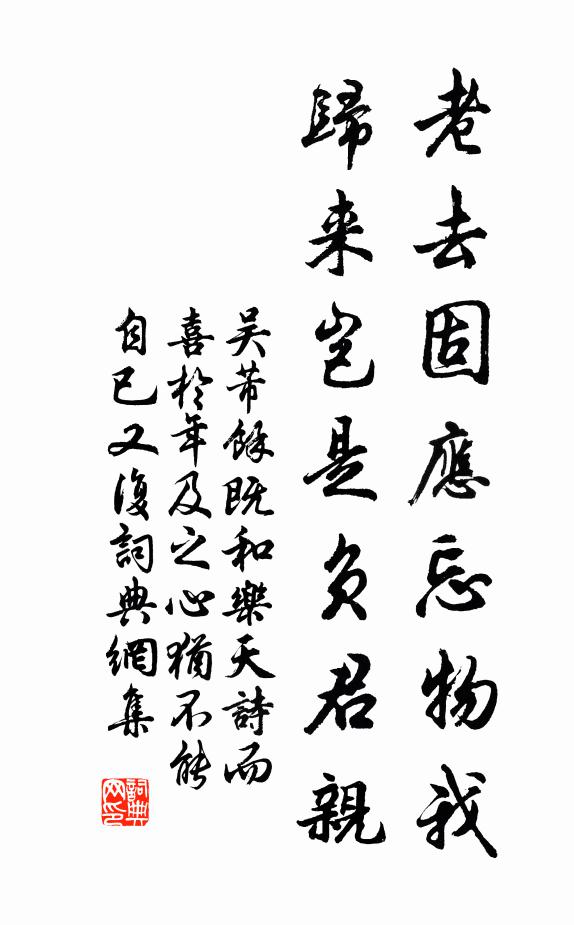 老去固應忘物我
歸来豈是負君親
吳芾餘既和樂天詩而
喜於年及之心猶不能
自已又復詞典網集
詞典网印